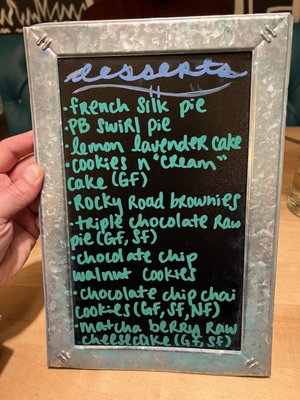 desserts
• french silk pie
• PB swirl pie
• lemon lavender cake
• cookies n "cream"
cake (GF)
• Rocky Road brownies
• triple chocolate Raw
pie (GF, SF)
• chocolate chip
walnut cookies
• chocolate chip chai
cookies (GF, SF, NF)
• matcha berry Raw
cheesecake (GF, SF)